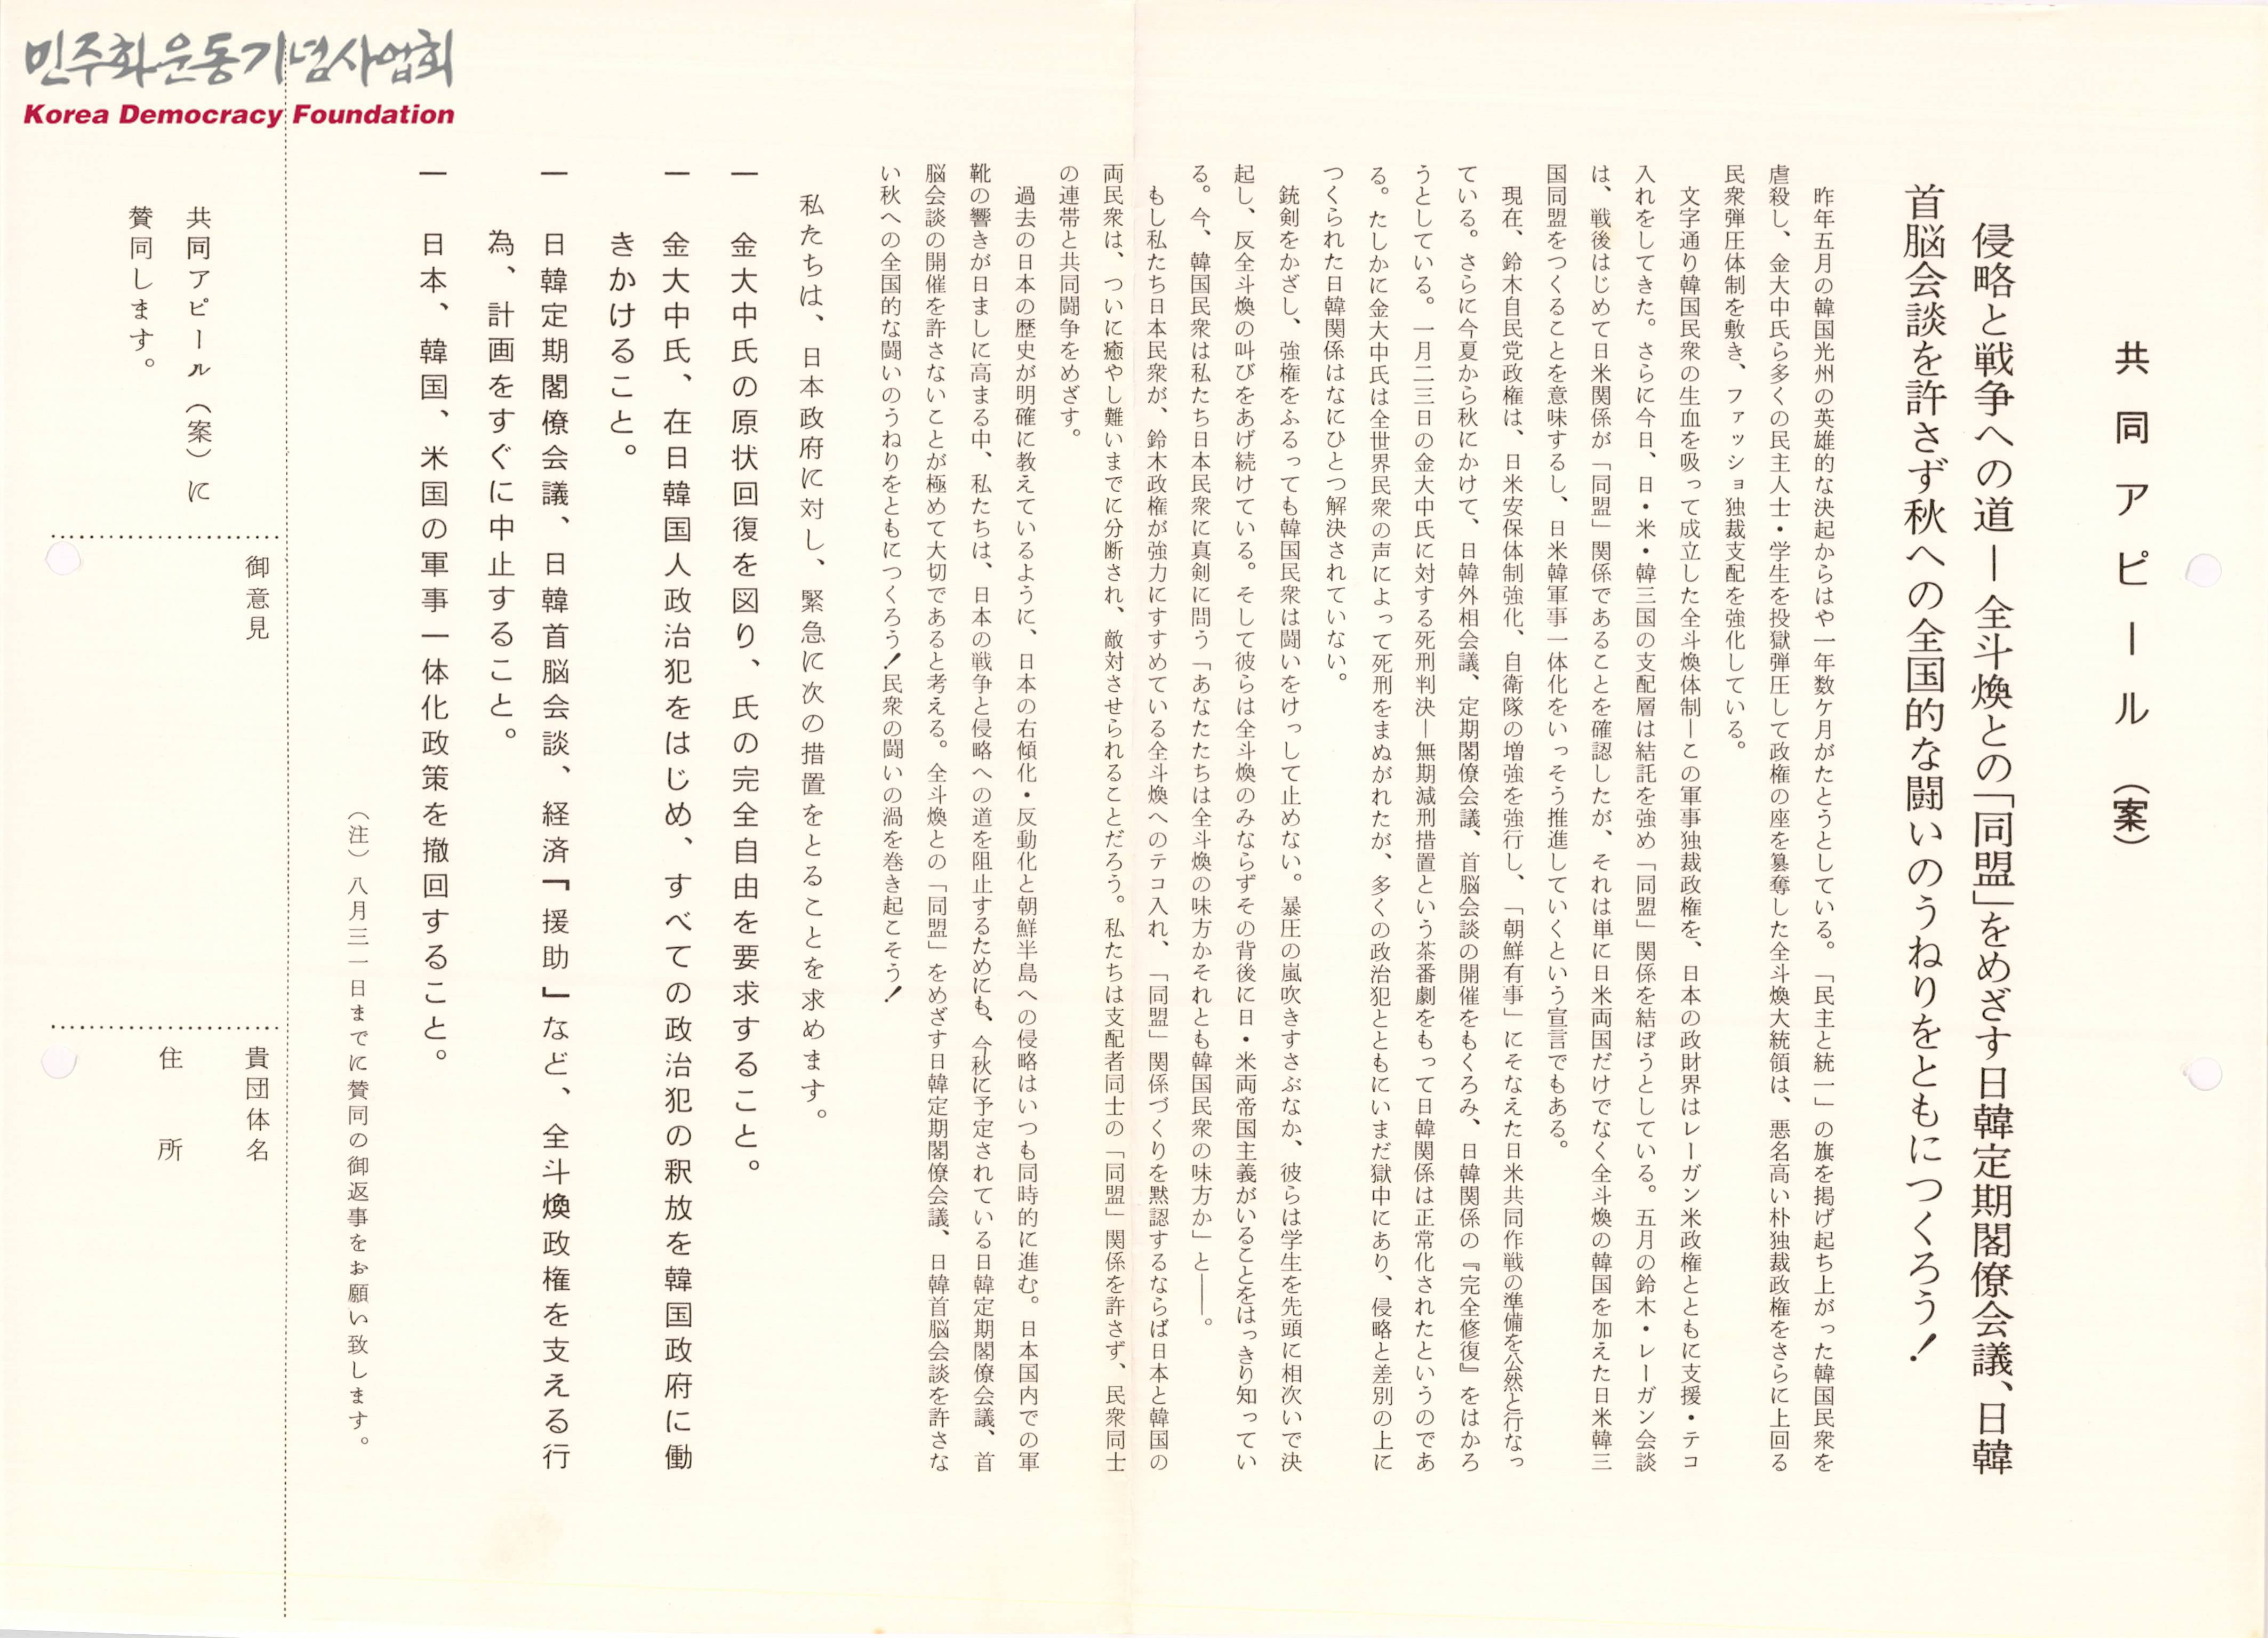 민주화운동기념사업회
Korea Democracy Foundation
共同アピール（案）
侵略と戦争への道―全斗煥との「同盟」をめざす日韓定期閣僚会議、日韓
首脳会談を許さず秋への全国的な闘いのうねりをともにつくろう！
昨年五月の韓国光州の英雄的な決起からはや一年数ヶ月がたとうとしている。「民主と統一」の旗を掲げ起ち上がった韓国民衆を
虐殺し、金大中氏ら多くの民主人士・学生を投獄弾圧して政権の座を簒奪した全斗煥大統領は、悪名高い朴独裁政権をさらに上回る
民衆弾圧体制を敷き、ファッショ独裁支配を強化している。
文字通り韓国民衆の生血を吸って成立した全斗煥体制―この軍事独裁政権を、日本の政財界はレーガン米政権とともに支援・テコ
入れをしてきた。さらに今日、日・米・韓三国の支配層は結託を強め「同盟」関係を結ぼうとしている。五月の鈴木・レーガン会談
は、戦後はじめて日米関係が「同盟」関係であることを確認したが、それは単に日米両国だけでなく全斗煥の韓国を加えた日米韓三
国同盟をつくることを意味するし、日米韓軍事一体化をいっそう推進していくという宣言でもある。
現在、鈴木自民党政権は、日米安保体制強化、自衛隊の増強を強行し、「朝鮮有事」にそなえた日米共同作戦の準備を公然と行なっ
ている。さらに今夏から秋にかけて、日韓外相会議、定期閣僚会議、首脳会談の開催をもくろみ、日韓関係の『完全修復』をはかろ
うとしている。一月二三日の金大中氏に対する死刑判決―無期減刑措置という茶番劇をもって日韓関係は正常化されたというのであ
る。たしかに金大中氏は全世界民衆の声によって死刑をまぬがれたが、多くの政治犯とともにいまだ獄中にあり、侵略と差別の上に
つくられた日韓関係はなにひとつ解決されていない。
銃剣をかざし、強権をふるっても韓国民衆は闘いをけっして止めない。暴圧の嵐吹きすさぶなか、彼らは学生を先頭に相次いで決
起し、反全斗煥の叫びをあげ続けている。そして彼らは全斗煥のみならずその背後に日・米両帝国主義がいることをはっきり知ってい
る。今、韓国民衆は私たち日本民衆に真剣に問う「あなたたちは全斗煥の味方かそれとも韓国民衆の味方か」と――。
もし私たち日本民衆が、鈴木政権が強力にすすめている全斗煥へのテコ入れ、「同盟」関係づくりを黙認するならば日本と韓国の
両民衆は、ついに癒やし難いまでに分断され、敵対させられることだろう。私たちは支配者同士の「同盟」関係を許さず、民衆同士
の連帯と共同闘争をめざす。
過去の日本の歴史が明確に教えているように、日本の右傾化・反動化と朝鮮半島への侵略はいつも同時的に進む。日本国内での軍
靴の響きが日ましに高まる中、私たちは、日本の戦争と侵略への道を阻止するためにも、今秋に予定されている日韓定期閣僚会議、首
脳会談の開催を許さないことが極めて大切であると考える。全斗煥との「同盟」をめざす日韓定期閣僚会議、日韓首脳会談を許さな
い秋への全国的な闘いのうねりをともにつくろう！民衆の闘いの渦を巻き起こそう！
私たちは、日本政府に対し、緊急に次の措置をとることを求めます。
一　金大中氏の原状回復を図り、氏の完全自由を要求すること。
一　金大中氏、在日韓国人政治犯をはじめ、すべての政治犯の釈放を韓国政府に働
きかけること。
一　日韓定期閣僚会議、日韓首脳会談、経済「援助」など、全斗煥政権を支える行
為、計画をすぐに中止すること。
一　日本、韓国、米国の軍事一体化政策を撤回すること。
（注）八月三一日までに賛同の御返事をお願い致します。
共同アピール（案）に
賛同します。
御意見
貴団体名
住所